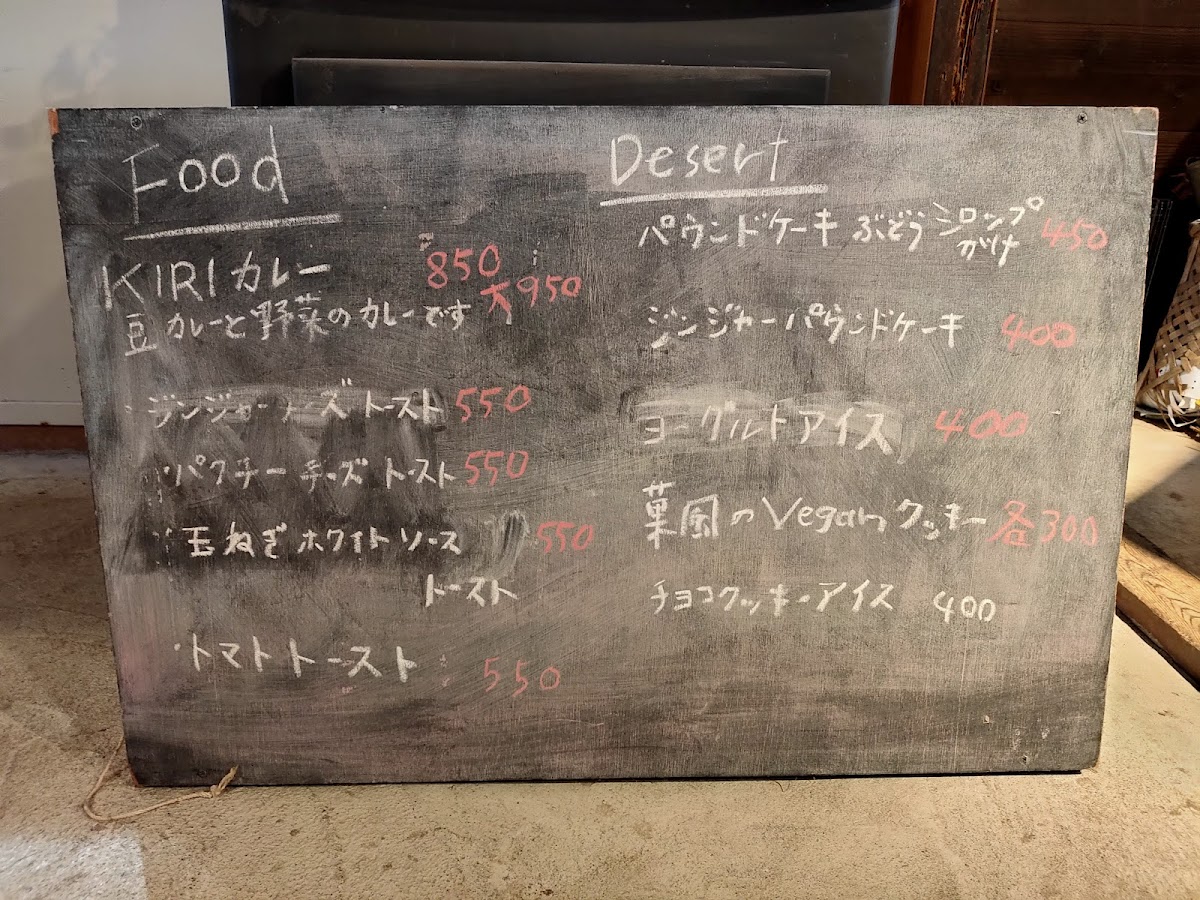 Food
KIRIカレー 850
大950
豆カレーと野菜のカレーです
・ジンジャーチーズトースト 550
・パクチーチーズトースト 550
・玉ねぎホワイトソース 550
トースト
・トマトトースト 550
Desert
パウンドケーキぶどうシロップ 450
がけ
ジンジャーパウンドケーキ 400
ヨーグルトアイス 400
菓風のVeganクッキー 各300
チョコクッキーアイス 400